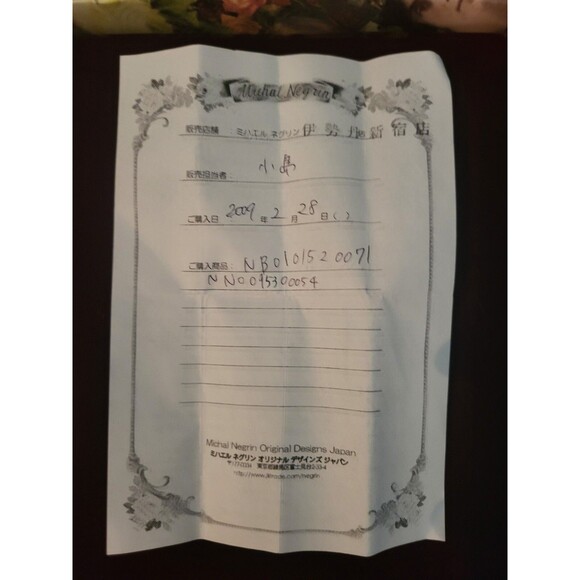 Michal Negrin
販売店舗 ミハエル ネグリン 伊勢丹 新宿店
販売担当者: 小島
ご購入日 2009 年 2 月 28 日 ( )
ご購入商品: NB0101520071
NN0015300054
Michal Negrin Original Designs Japan
ミハエル ネグリン オリジナル デザインズ ジャパン
東京都練馬区富士見台2-33-4